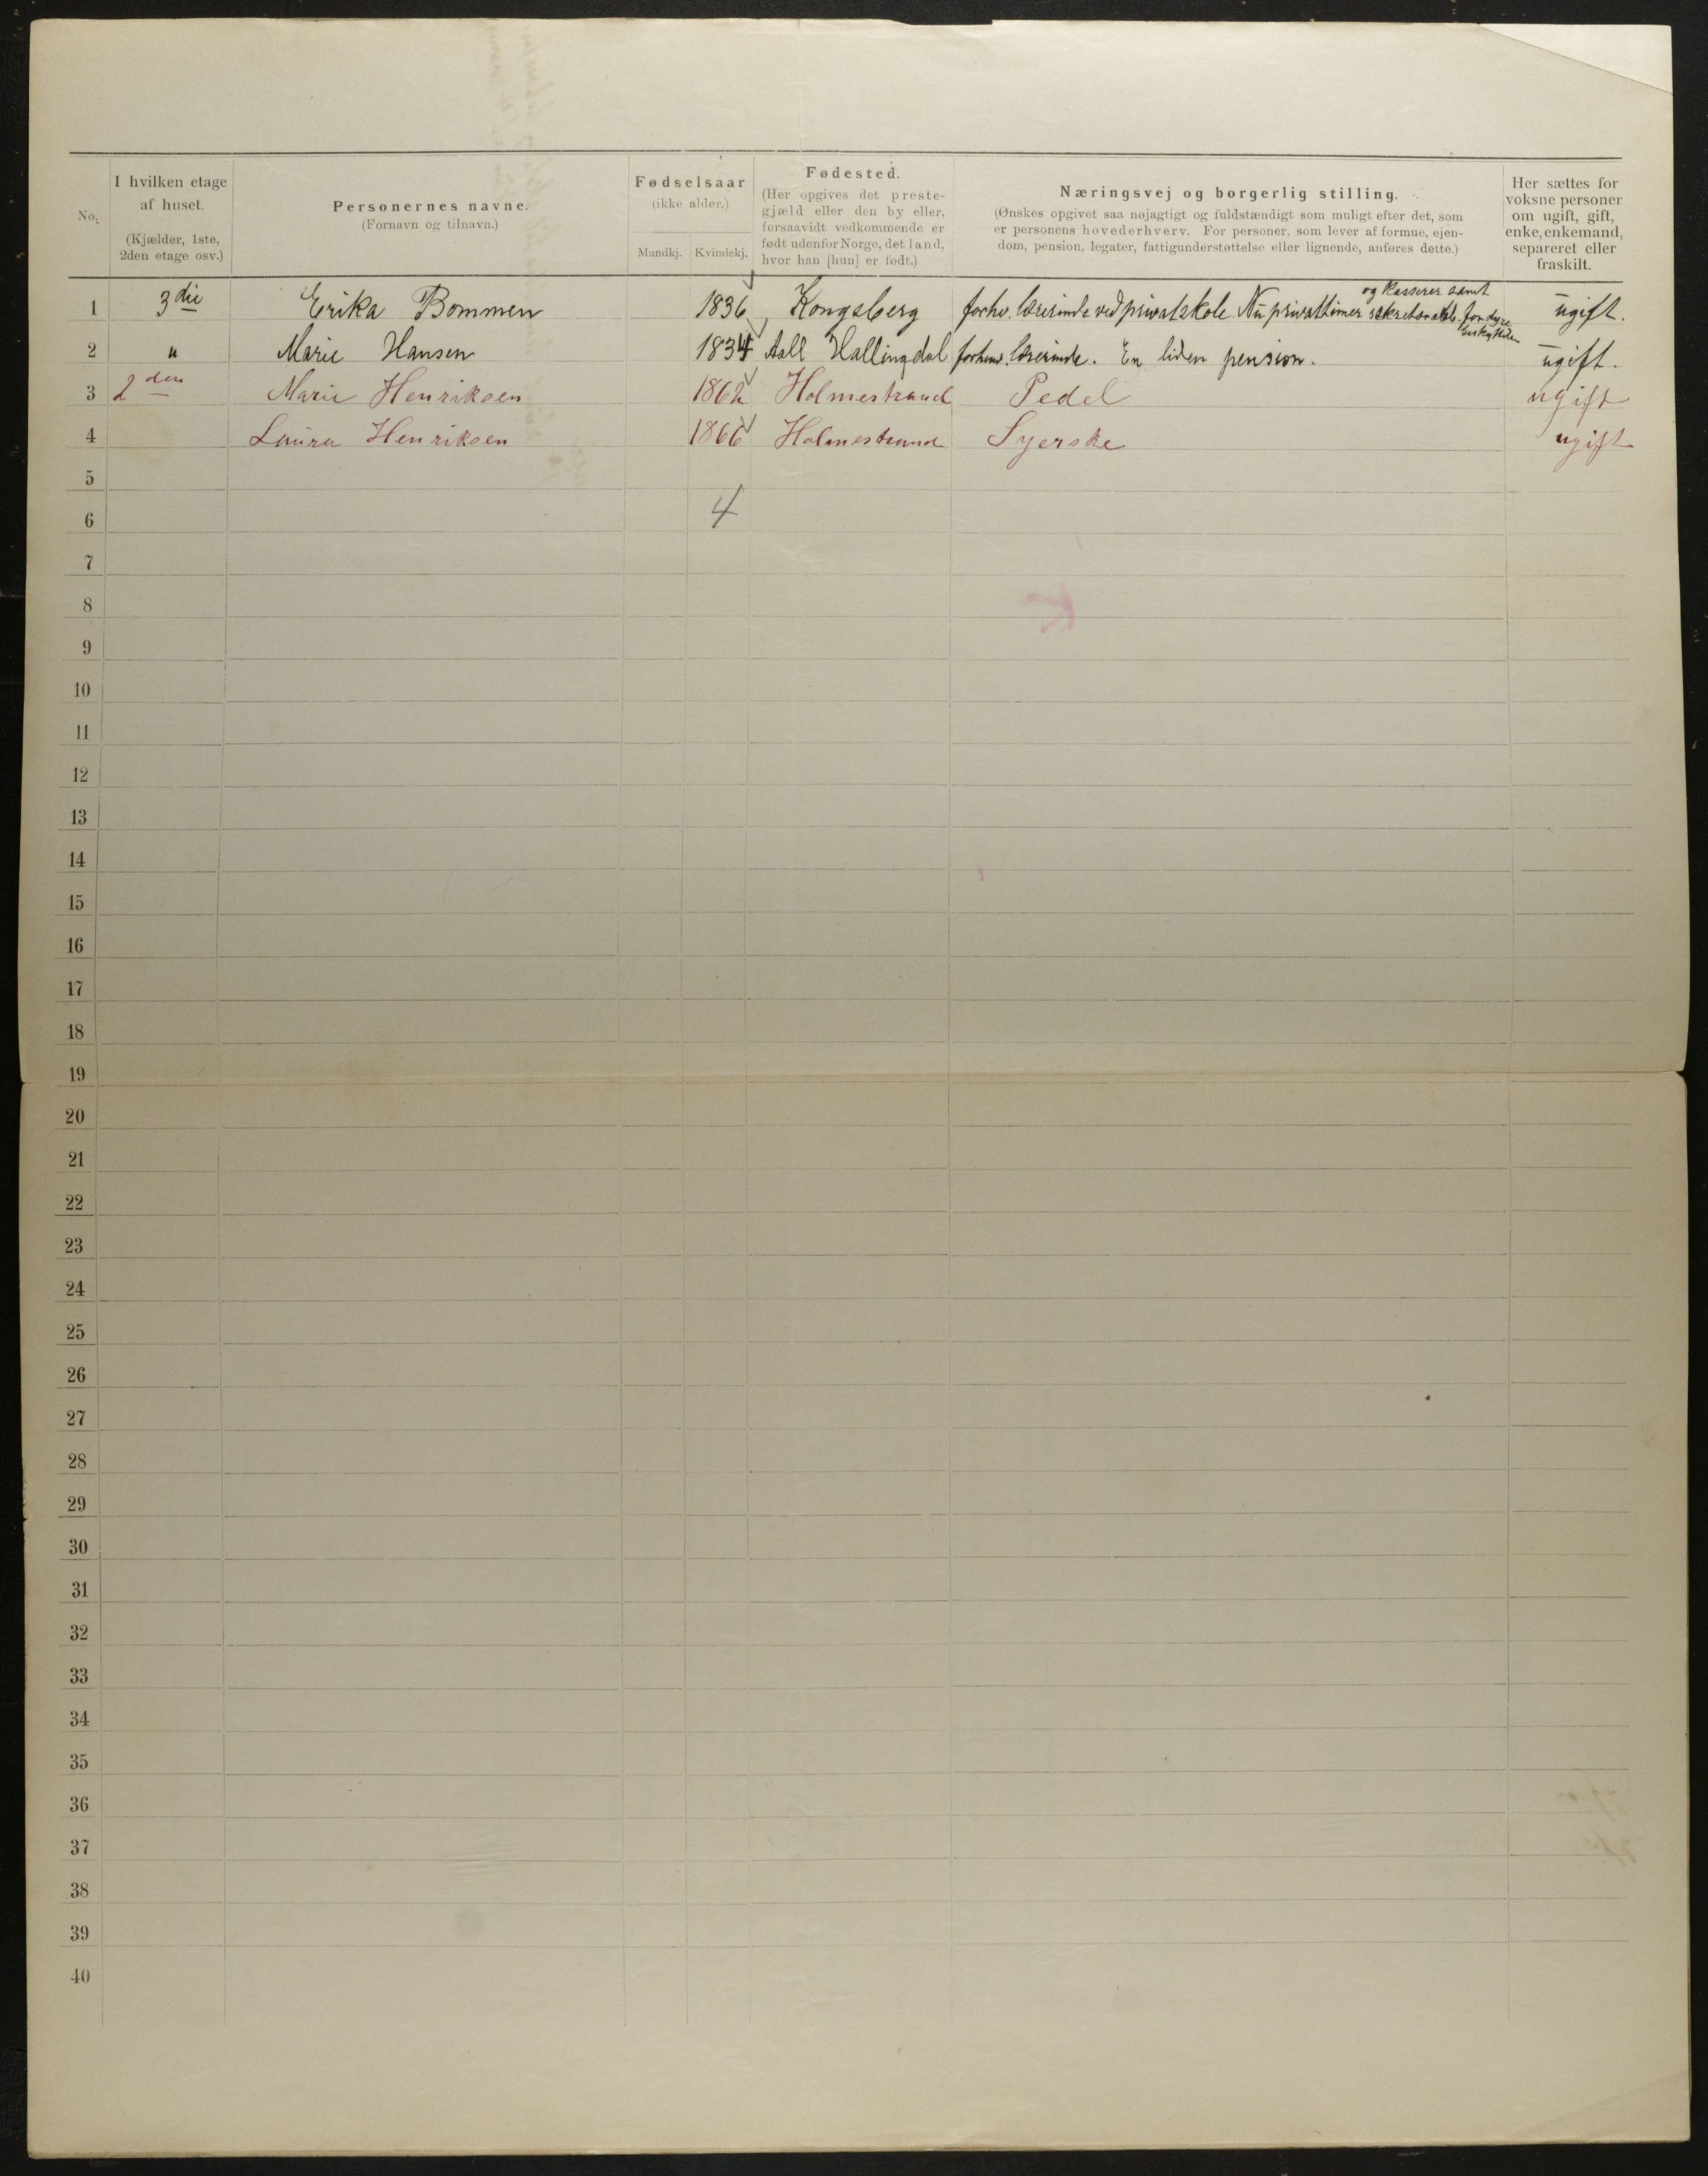 No.
I hvilken etage
af huset.
(Kjælder, 1ste,
2den etage osv.)
Personernes navne.
(Fornavn og tilnavn.)
Fødselsaar
(ikke alder.)
Mandkj. Kvindekj.
Fødested.
(Her opgives det preste-
gjæld eller den by eller,
forsaavidt vedkommende er
født udenfor Norge, det land,
hvor han [hun] er født.)
Næringsvej og borgerlig stilling.
(Ønskes opgivet saa nøjagtigt og fuldstændigt som muligt efter det, som
er personens hovederhverv. For personer, som lever af formue, ejen-
dom, pension, legater, fattigunderstøttelse eller lignende, anføres dette.)
Her sættes for
voksne personer
om ugift, gift,
enke, enkemand,
separeret eller
fraskilt.
og kasserer samt
1 3die Erika Bommen 1836 Kongsberg forhv. lærerinde ved privatskole. Nu privattimer for dyre ugift.
2 " Marie Hansen 1834 Aall Hallingdal forhenv. lærerinde. En liden pension. ugift.
3 2den Marie Henriksen 1862 Holmestrand Pedel ugift
4 Laura Henriksen 1866 Holmestrand Syerske ugift
5
6 4
7
8
9
10
11
12
13
14
15
16
17
18
19
20
21
22
23
24
25
26
27
28
29
30
31
32
33
34
35
36
37
38
39
40